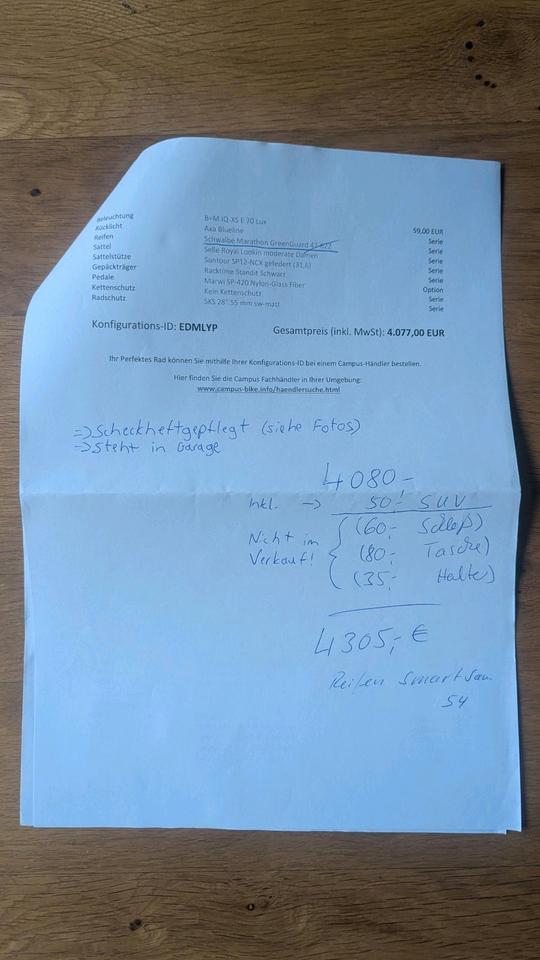 Beleuchtung B+M IQ-XS E 70 Lux
Rücklicht Axa Blueline 59,00 EUR
Reifen Schwalbe Marathon GreenGuard 47-622 Serie
Sattel Selle Royal Lookin moderate Damen Serie
Sattelstütze Suntour SP12-NCX gefedert (31,6) Serie
Gepäckträger Racktime Standit Schwarz Serie
Pedale Marwi SP-420 Nylon-Glass Fiber Serie
Kettenschutz Kein Kettenschutz Option
Radschutz SKS 28" 55 mm sw-matt Serie
Konfigurations-ID: EDMLYP Gesamtpreis (inkl. MwSt): 4.077,00 EUR
Ihr Perfektes Rad können Sie mithilfe Ihrer Konfigurations-ID bei einem Campus-Händler bestellen.
Hier finden Sie die Campus Fachhändler in Ihrer Umgebung:
www.campus-bike.info/haendlersuche.html
=> Scheckheftgepflegt (siehe Fotos)
=> Steht in Garage
4080,-
Inkl. -> 50,- SUV
Nicht im Verkauf! { (60,- Schloß)
(80,- Tasche)
(35,- Halter)
4305,- €
Reifen Smart Sam
54